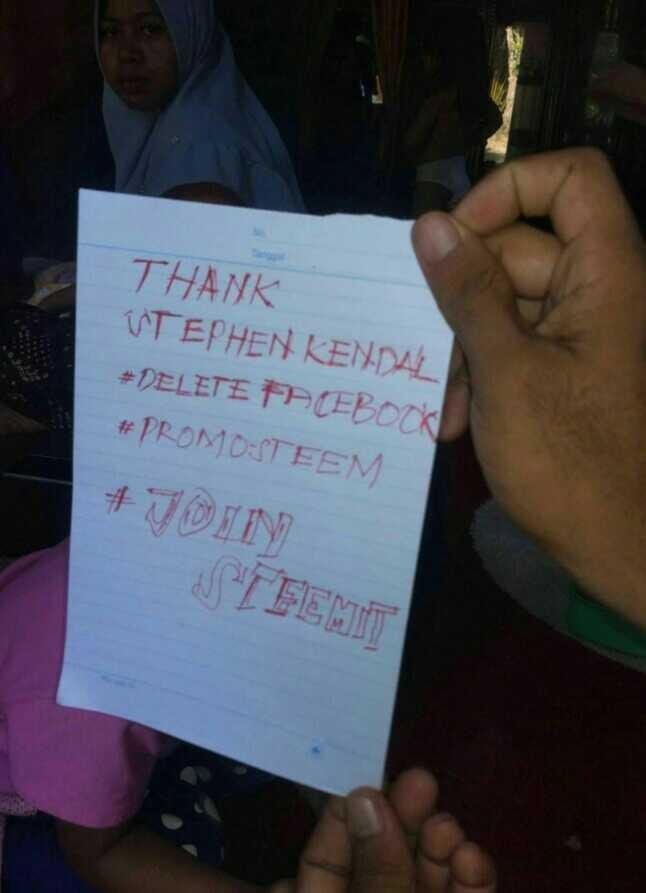 No.
Tanggal
THANK
STEPHEN KENDAL
#DELETE FACEBOOK
#PROMO-STEEM
#JOIN
STEEMIT